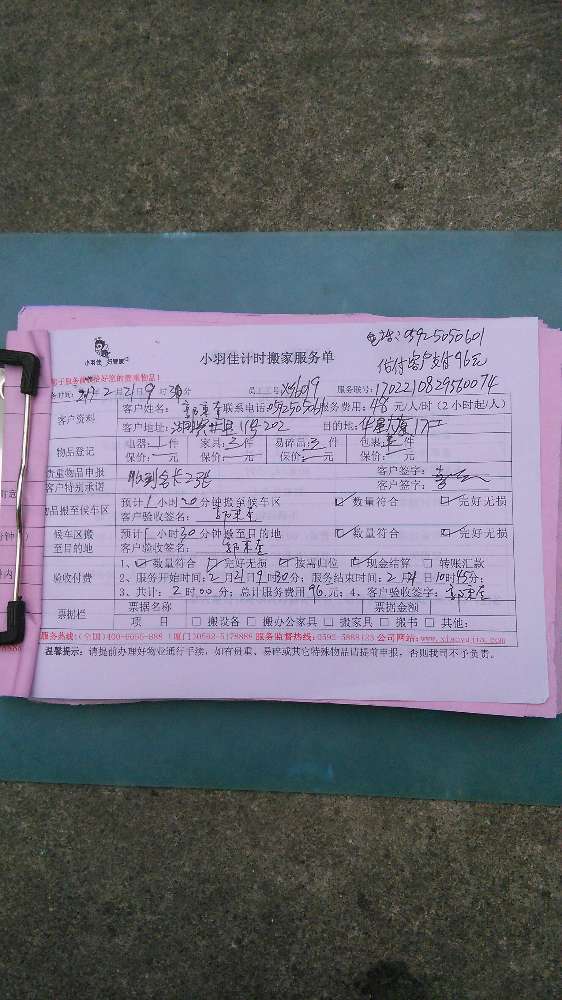 电话:05925050601
估付客户支付96元
小羽佳 好管家
小羽佳计时搬家服务单
时间:2017年2月21日9时30分 员工工号X9619 服务账号:1702210829560074
客户资料
客户姓名: 联系电话05925050601服务费用:48元/人/时(2小时起/人)
客户地址: 11号202 目的地:华星大厦17
物品登记
电器:1件 家具:三件 易碎高:三件 包装:三件
保价:一元 保价:一元 保价:一元 保价:一元
贵重物品申报 客户签字:
客户特别承诺 客户签字:
物品搬至候车区
预计1小时20分钟搬至候车区 ☑数量符合 ☑完好无损
客户验收签名:
候车区搬至目的地
预计1小时30分钟搬至目的地 ☑数量符合 ☑完好无损
客户验收签名:
验收付费
1、☑数量符合 ☑完好无损 ☑按需归位 ☑现金结算 □转账汇款
2、服务开始时间:2月21日9时30分;服务结束时间:2月21日10时45分;
3、共计:2时00分;总计服务费用96元;4、客户验收签字:
票据栏
票据名称 票据金额
项目 □搬设备 □搬办公家具 □搬家具 □搬书 □其他:
服务监督热线:0592-5888123 公司网站:www.xiaoyujia.com
温馨提示:请提前办理好物业通行手续,如有贵重、易碎或其它特殊物品请提前申报,否则我司不予负责。